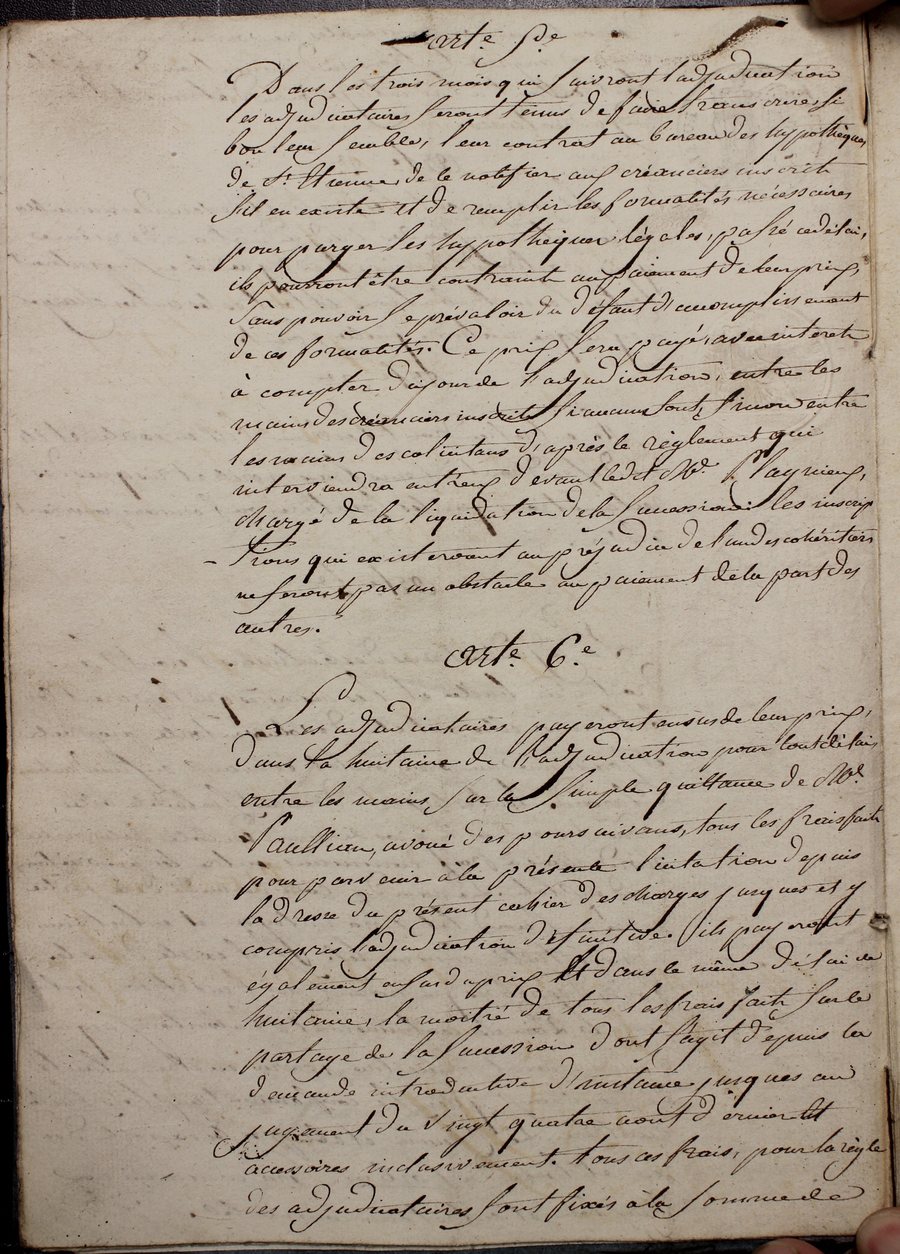 arte 5e
Dans les trois mois qui suivront l'adjudication
les adjudicataires seront tenus de faire transcrire si
bon leur semble, leur contrat au bureau des hypothèques
de St. Etienne, de le notifier aux créanciers inscrits
s'il en existe et de remplir les formalités nécessaires
pour purger les hypothèques légales, passé ce délai,
ils pourront être contraints au paiement de leur prix,
sans pouvoir se prévaloir du défaut d'accomplissement
de ces formalités. Ce prix sera payé, avec intérêts
à compter du jour de l'adjudication, entre les
mains des créanciers inscrits si aucuns sont, sinon entre
les mains des colicitans d'après le règlement qui
interviendra entr'eux devant led. Me.
chargé de la liquidation de la succession. les inscrip
-tions qui existeroient au préjudice de l'un des cohéritiers
ne seront pas un obstacle au paiement de la part des
autres.
arte. 6.e
Les adjudicataires payeront en sus de leur prix,
dans la huitaine de l'adjudication pour tout délai,
entre les mains, sur la simple quittance de Me.
Paullian, avoué des poursuivans, tous les frais faits
pour parvenir à la présente licitation depuis
la dresse du présent cahier des charges jusques et y
compris l'adjudication définitive. ils payeront
également en sus du prix et dans le même délai de
huitaine, la moitié de tous les frais faits sur le
partage de la succession dont s'agit depuis la
demande introductive d'instance jusques au
jugement du vingt quatre août dernier et
accessoires inclusivement. tous ces frais, pour la règle
des adjudicataires sont fixés à la somme de